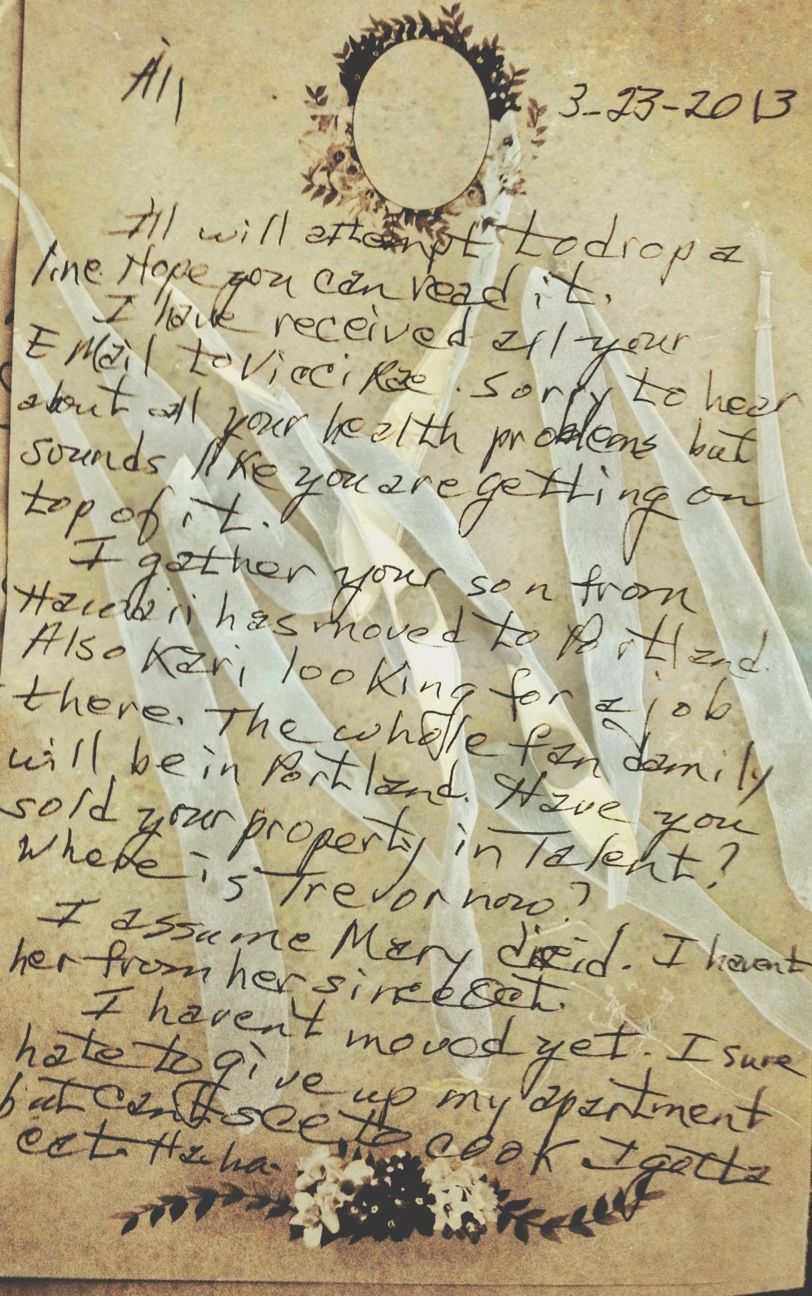 All 3-23-2013
I'll will attempt to drop a
line. Hope you can read it.
I have received all your
E Mail to Vicci Rae. sorry to hear
about all your health problems but
sounds like you are getting on
top of it.
I gather your son from
Hawaii has moved to Portland.
Also Kari looking for a job
there. The whole fan damily
will be in Portland. Have you
sold your property in Talent?
Where is Trevor now?
I assume Mary died. I havent
her from her since Oct.
I haven't moved yet. I sure
hate to give up my apartment
but can't see to cook I gotta
eat. Ha ha.